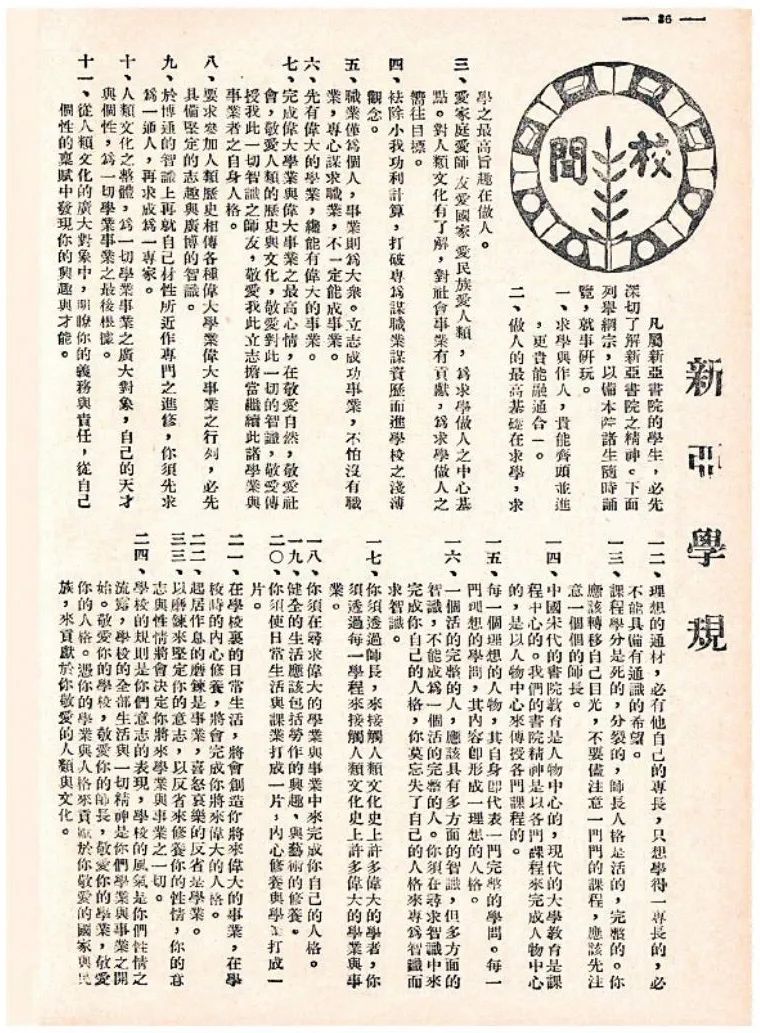 — 36 —
校聞
新亞學規
凡屬新亞書院的學生，必先
深切了解新亞書院之精神。下面
列舉綱宗，以備本院諸生隨時誦
覽，就事研玩。
一、求學與作人，貴能齊頭並進
，更貴能融通合一。
二、做人的最高基礎在求學，求
學之最高旨趣在做人。
三、愛家庭愛師友愛國家愛民族愛人類，為求學做人之中心基
點。對人類文化有了解，對社會事業有貢獻，為求學做人之
嚮往目標。
四、袪除小我功利計算，打破專為謀職業謀資歷而進學校之淺薄
觀念。
五、職業僅為個人，事業則為大衆。立志成功事業，不怕沒有職
業，專心謀求職業，不一定能成事業。
六、先有偉大的學業，纔能有偉大的事業。
七、完成偉大學業與偉大事業之最高心情，在敬愛自然，敬愛社
會，敬愛人類的歷史與文化，敬愛對此一切的智識，敬愛傳
授我此一切智識之師友，敬愛我此立志擔當繼續此諸學業與
事業者之自身人格。
八、要求參加人類歷史相傳各種偉大學業偉大事業之行列，必先
具備堅定的志趣與廣博的智識。
九、於博通的智識上再就自己材性所近作專門之進修，你須先求
為一通人，再求成為一專家。
十、人類文化之整體，為一切學業事業之廣大對象，自己的天才
與個性，為一切學業事業之最後根據。
十一、從人類文化的廣大對象中，明瞭你的義務與責任，從自己
個性的禀賦中發現你的興趣與才能。
一二、理想的通材，必有他自己的專長，只想學得一專長的，必
不能具備有通識的希望。
一三、課程學分是死的，分裂的，師長人格是活的，完整的。你
應該轉移自己目光，不要儘注意一門門的課程，應該先注
意一個個的師長。
一四、中國宋代的書院教育是人物中心的，現代的大學教育是課
程中心的。我們的書院精神是以各門課程來完成人物中心
的，是以人物中心來傳授各門課程的。
一五、每一個理想的人物，其自身即代表一門完整的學問。每一
門理想的學問，其內容卽形成一理想的人格。
一六、一個活的完整的人，應該具有多方面的智識，但多方面的
智識，不能成為一個活的完整的人。你須在尋求智識中來
完成你自己的人格，你莫忘失了自己的人格來專為智識而
求智識。
一七、你須透過師長，來接觸人類文化史上許多偉大的學者，你
須透過每一學程來接觸人類文化史上許多偉大的學業與事
業。
一八、你須在尋求偉大的學業與事業中來完成你自己的人格。
一九、健全的生活應該包括勞作的興趣、與藝術的修養。
二〇、你須使日常生活與課業打成一片，內心修養與學業打成一
片。
二一、在學校裏的日常生活，將會創造你將來偉大的事業，在學
校時的內心修養，將會完成你將來偉大的人格。
二二、起居作息的磨鍊是事業，喜怒哀樂的反省是學業。
二三、以磨鍊來堅定你的意志，以反省來修養你的性情，你的意
志與性情將會決定你將來學業與事業之一切。
二四、學校的規則是你們意志的表現，學校的風氣是你們性情之
流露，學校的全部生活與一切精神是你們學業與事業之開
始。敬愛你的學校，敬愛你的師長，敬愛你的學業，敬愛
你的人格。憑你的學業與人格來貢獻於你敬愛的國家與民
族，來貢獻於你敬愛的人類與文化。